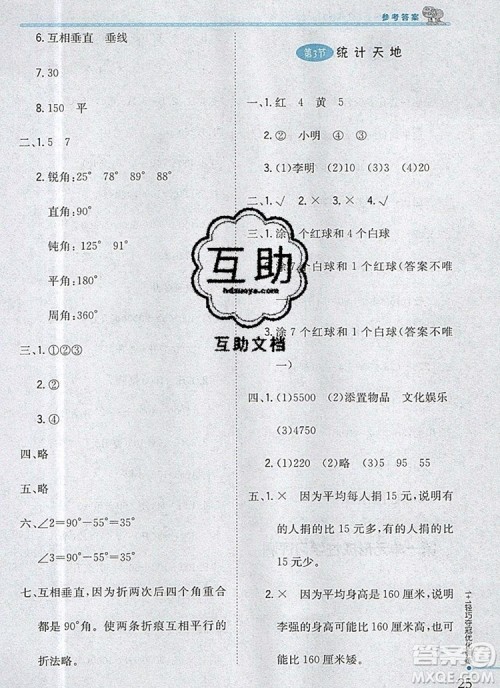 参考答案
6. 互相垂直 垂线
7. 30
8. 150 平
二、1. 5 7
2. 锐角：25° 78° 89° 88°
直角：90°
钝角：125° 91°
平角：180°
周角：360°
三、1. ①②③
2. ④
3. ④
四、略
五、略
六、∠2=90°-55°=35°
∠3=90°-55°=35°
七、互相垂直，因为折两次后四个角重合都是90°。使两条折痕互相平行的
折法略。
第3节 统计天地
一、1. 红 4 黄 5
2. ② 小明 ④ ③
3. (1)李明 (2)322 (3)(4)620
二、1. √ 2. × 3. × 4. √
三、1. 涂 个红球和 4 个白球
2. 涂 7 个红球和 1 个白球（答案不唯
一）
3. 涂 7 个红球和 1 个黄球（答案不唯
一）
四、1. (1)5500 (2)添置物品 文化娱乐
(3)4750
2. (1)220 (2)略 (3)95
五、1. × 因为平均每人捐 15 元，说明可能
有的人捐的比 15 元多，有的人捐的比
15 元少。
2. × 因为平均身高是 160 厘米，说明
李强的身高可能比 160 厘米高，也可能
比 160 厘米矮。
1+1轻巧夺冠优化
25
互助
hdzuoye.com
互助文档
答案圈
MXQE.COM